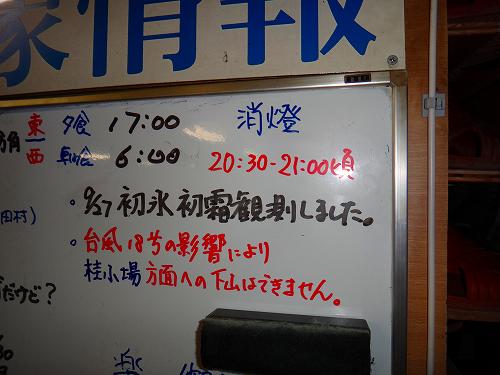 象情報
方角 東 夕食 17:00 消燈
西 朝食 6:00 20:30-21:00頃
・9/27 初氷初霜観測しました。
田村)
・台風18号の影響により
桂小場方面への下山はできません。
だけど?
30
楽